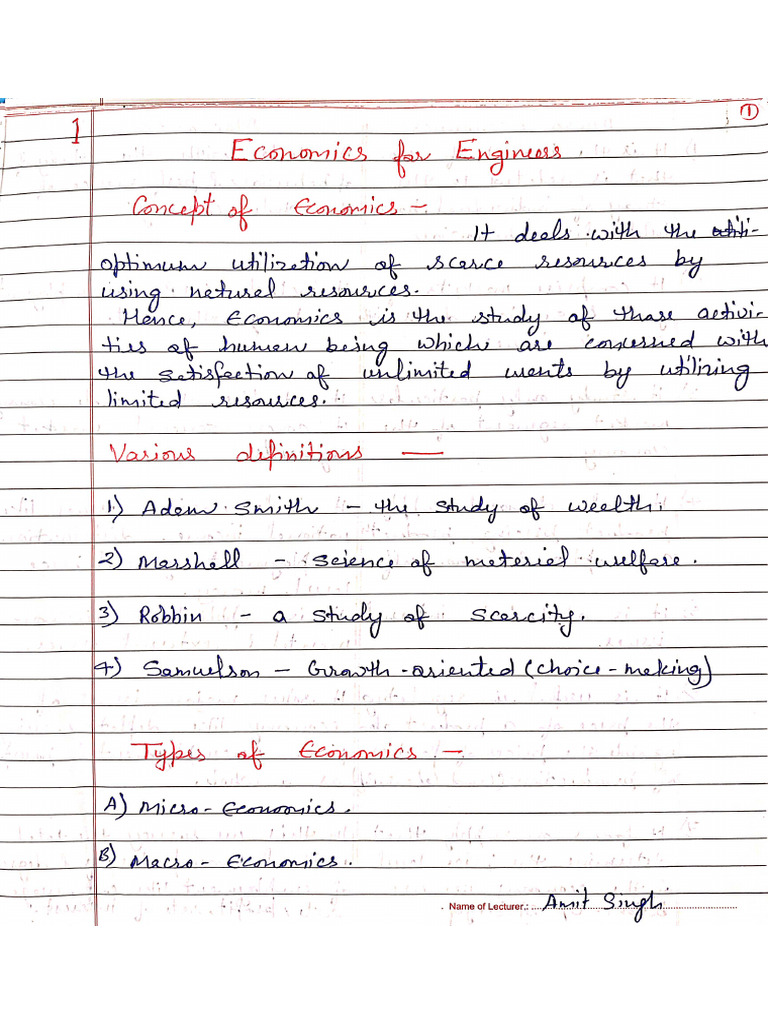 ①
1
Economics for Engineers
Concept of Economics -
It deals with the utili-
optimum utilization of scarce resources by
using natural resources.
Hence, Economics is the study of those activi-
ties of human being which are concerned with
the satisfaction of unlimited wants by utilizing
limited resources.
Various definitions —
1) Adam Smith - the study of wealth.
2) Marshall - science of material welfare.
3) Robbin - a study of scarcity.
4) Samuelson - Growth-oriented (choice-making)
Types of Economics -
A) Micro-Economics.
B) Macro-Economics.
Name of Lecturer.: Amit Singh